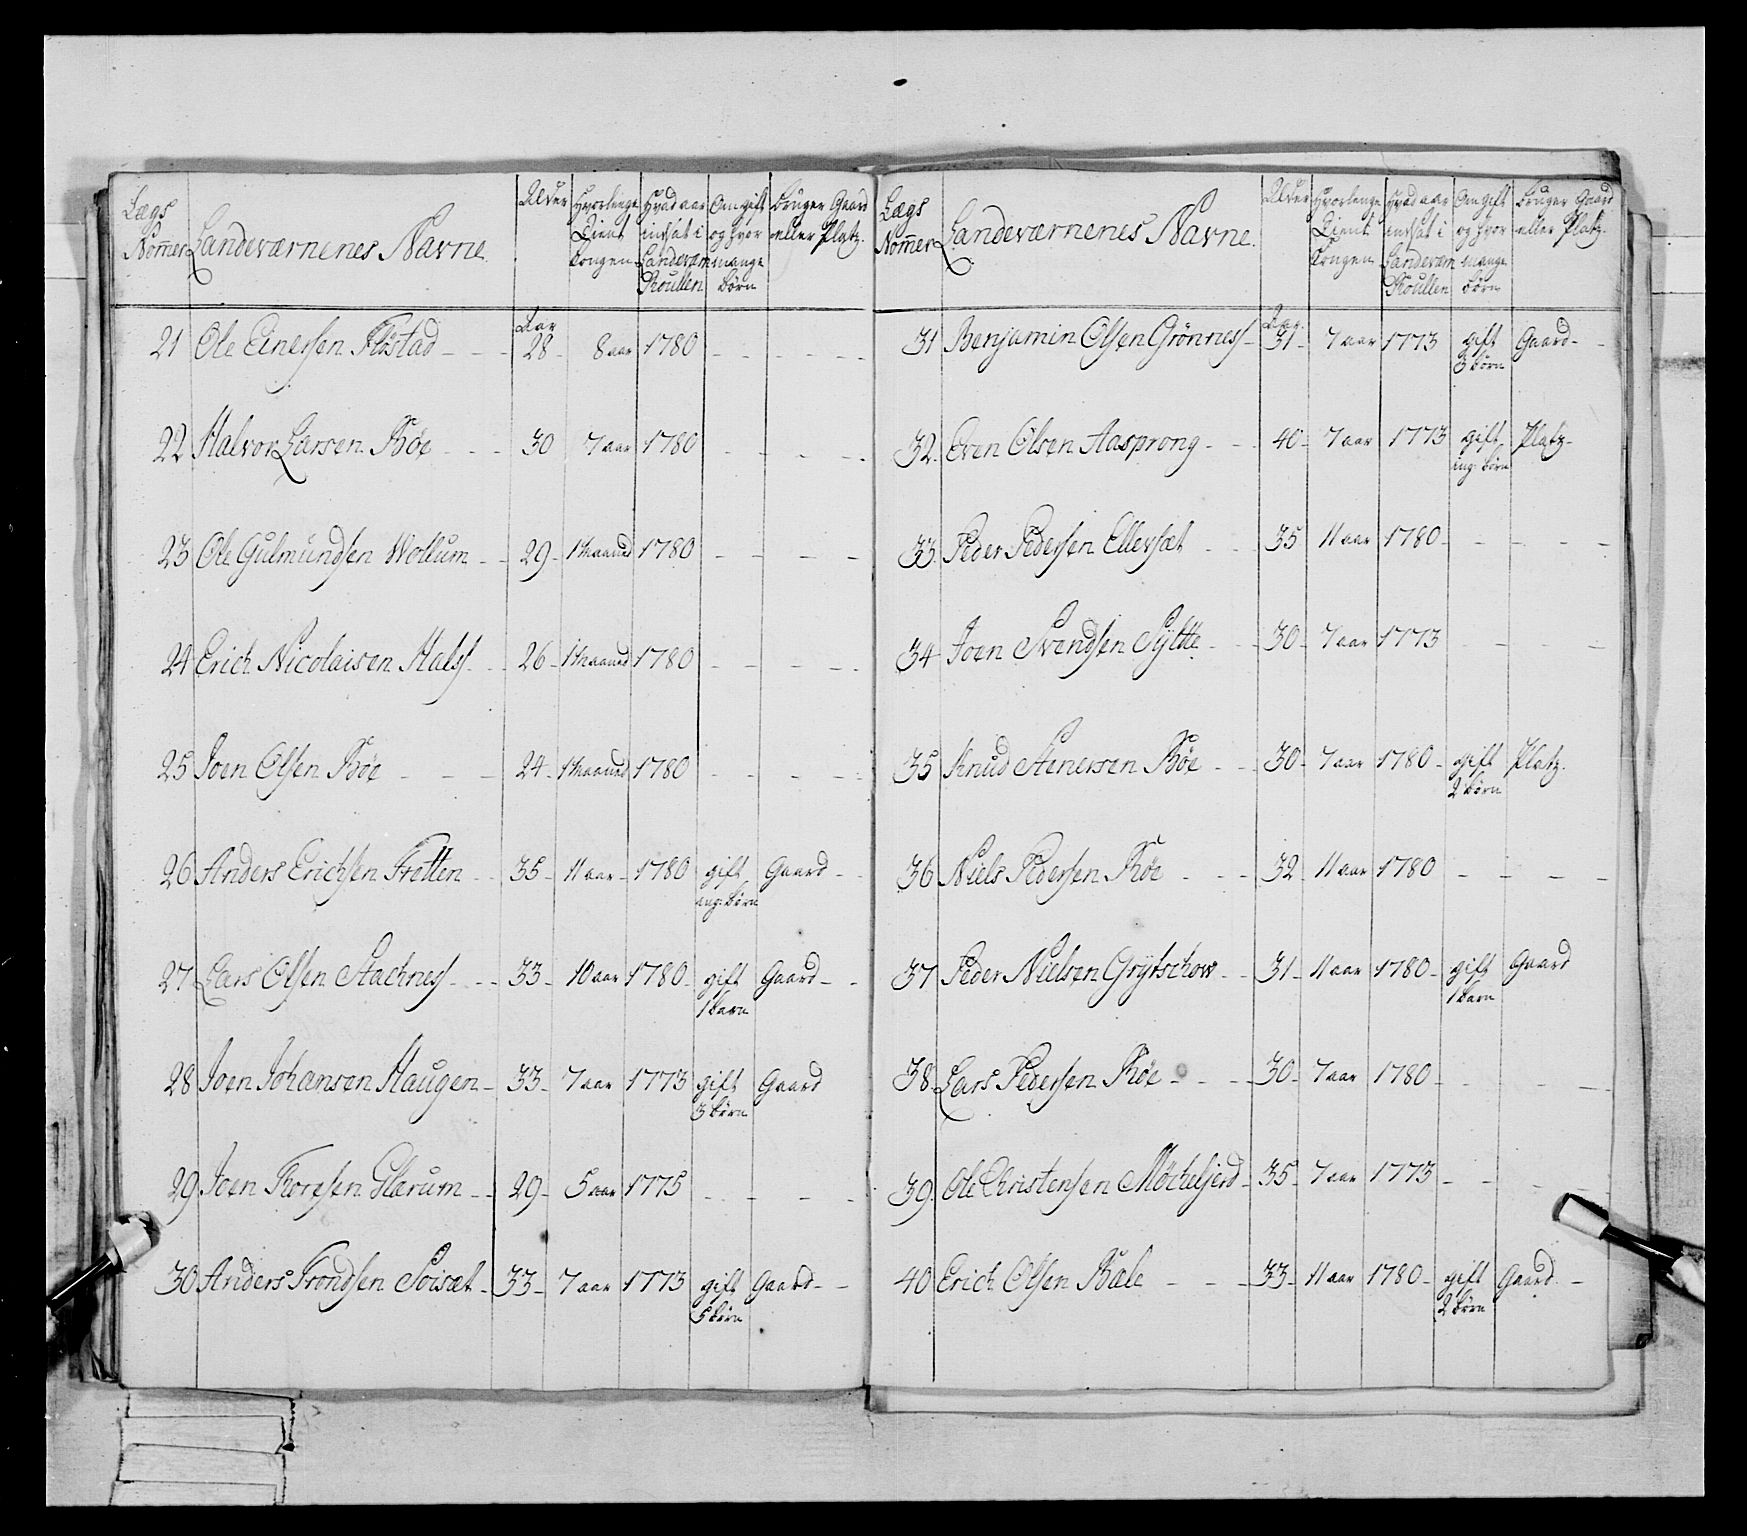 Lægs Nom̄er Landeværnenes Navne. Alder Hvorlenge Tient Kongen Hvad aar indsat i Landeværn Roullen Om gift og hvor mange børn bruger Gaard eller Platz.
21 Ole Einersen Flostad - - - Aar 28 - 8 aar 1780 - - - -
22 Halvor Larsen Böe - - - 30 7 aar 1780 - - - -
23 Ole Gulmundsen Wollum - - 29 - 1 Maaned 1780 - - - -
24 Erich Nicolaisen Hals - - 26 - 1 Maaned 1780 - - - -
25 Joen Olsen Böe - - - 24 - 1 Maaned 1780 - - - -
26 Anders Erichsen Tretten - - 35 - 11 aar - 1780 gift Gaard - -
ing: børn
27 Lars Olsen Stachnes - - - 33 - 10 aar 1780 - gift Gaard - -
1 barn
28 Joen Johansen Haugen - 33 - 7 aar 1773 gift Gaard
3 børn
29 Joen Toresen Glærum - - 29 - 5 aar 1775 - - - -
30 Anders Trondsen Soisæt - 33 - 7 aar 1773 gift Gaard - -
5 børn
Lægs Nom̄er Landeværnenes Navne. Alder Hvorlenge Tient Kongen Hvad aar indsat i Landeværn Roullen Om gift og hvor mange børn bruger Gaard eller Platz.
31 Benjamin Olsen Grönnes - Aar 31 - 7 aar 1773 gift Gaard - -
3 børn
32. Even Olsen Aasprong - - 40 - 7 aar 1773 gift Platz -
ing: børn
33. Peder Pedersen Ellevsæt - - 35 11 aar 1780 - - - - -
34 Joen Svendsen Sÿltte - - 30 - 7 aar 1773 - - - -
35 Knud Stenersen Böe - - 30 - 7 aar 1780 - gift Platz.
2 børn
36 Niels Pedersen Böe - - - 32 11 aar 1780 - - - -
37 Peder Nielsen Grÿtschow - - 31 - 11 aar 1780 - gift Gaard
1 barn
38 Lars Pedersen Böe - - - 30 - 7 aar 1780 - - - -
39. Ole Christensen Möcheljerd - 35 - 7 aar 1773 - - - -
40 Erich Olsen Bale - - - 33 - 11 aar 1780 - gift Gaard. -
2 børn